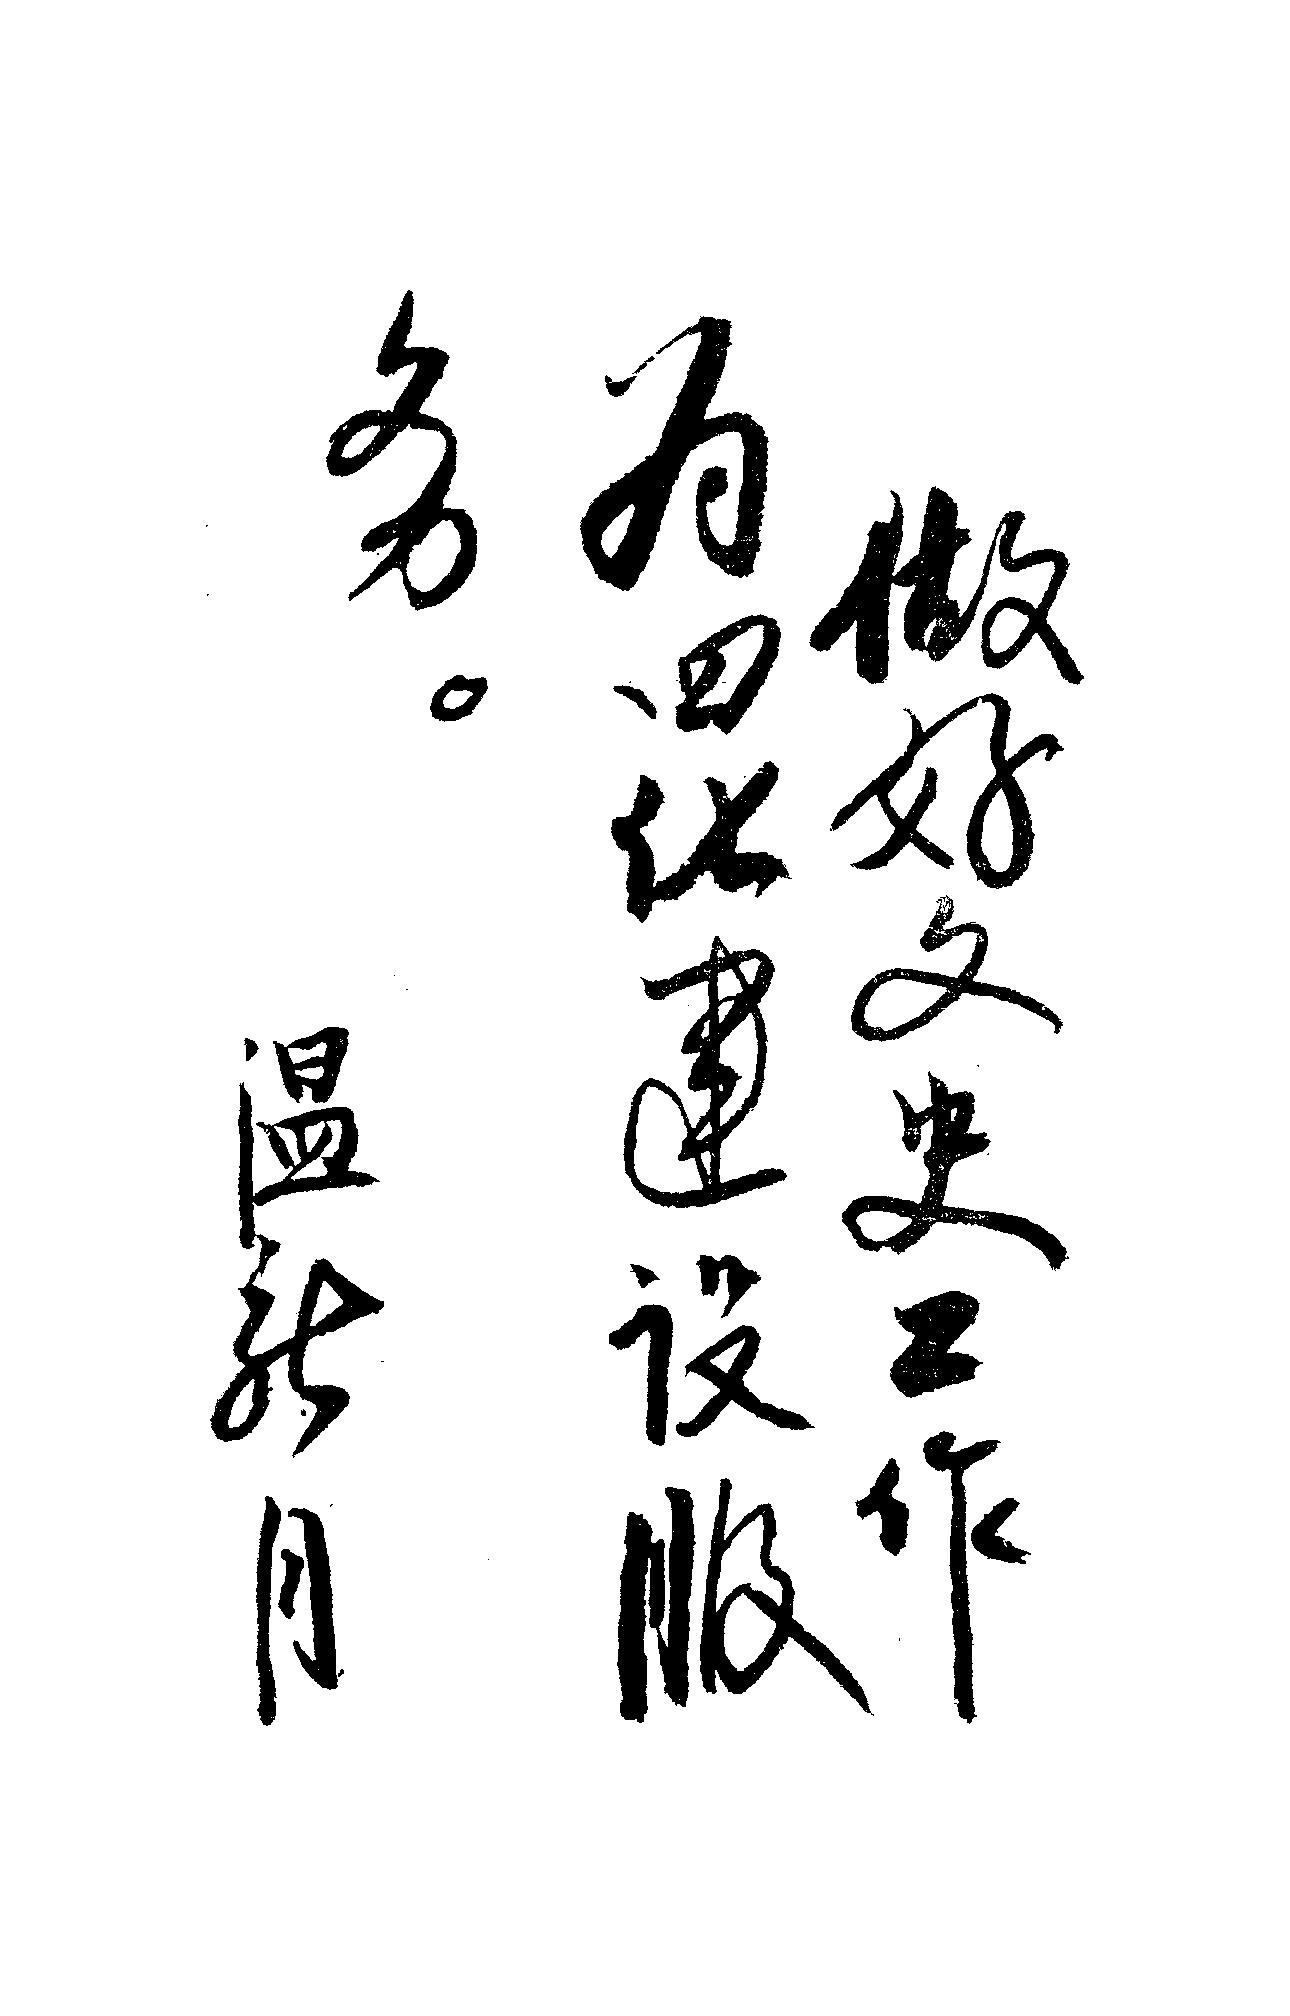 做好文史工作
为四化建设服
务。
温
月